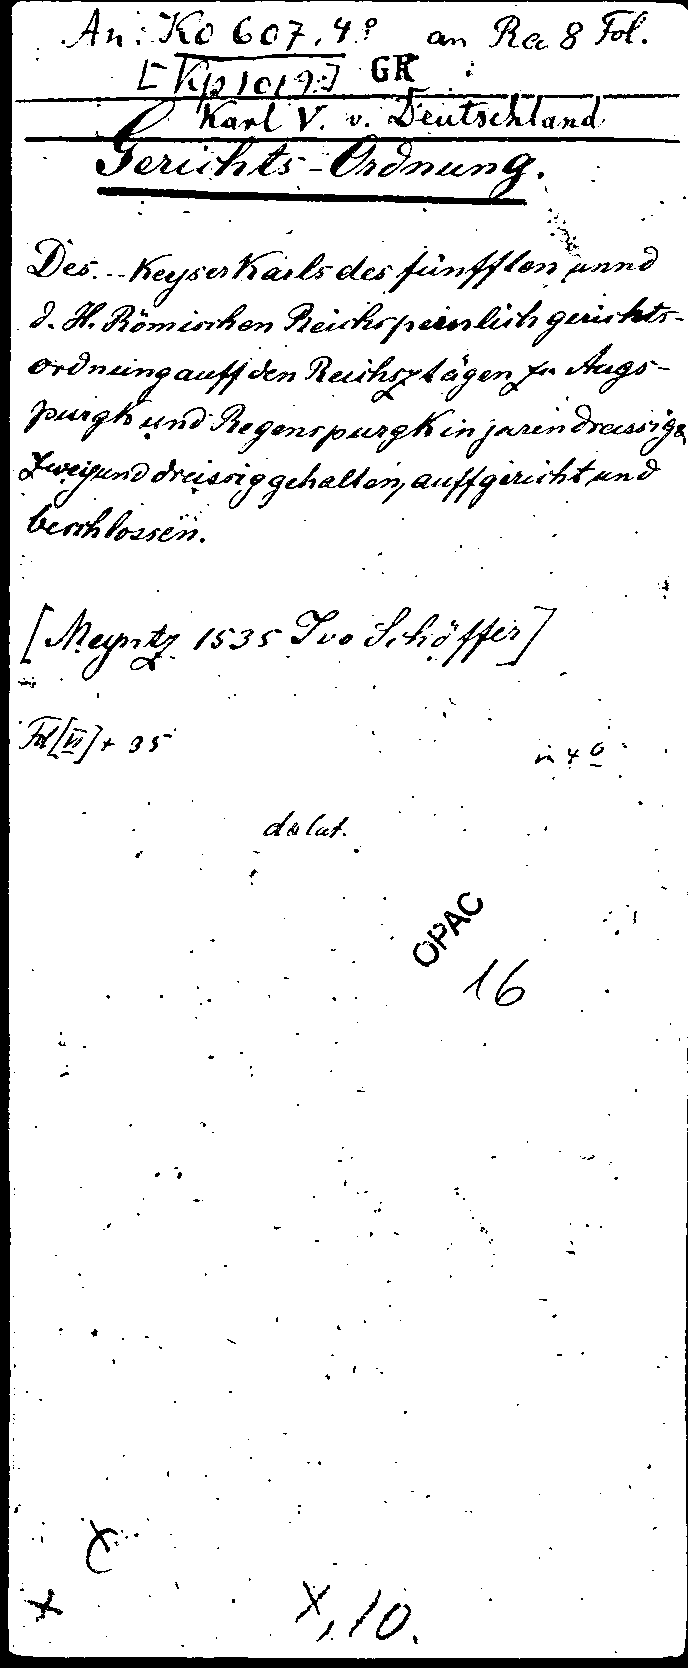 An: Ko 607,4º an Ra 8 Fol.
[Kp 1019:] GK
Karl V. v. Deutschland
Gerichts-Ordnung.
Des... Keyser Karls des fünfften unnd
d. H. Römischen Reichs peinlich gerichts-
ordnung auff den Reichsztägen zu Augs-
purgk und Regenspurgk in jaren dreissig &
Zwei und dreissig gehalten, auffgericht und
beschlossen.
[Meyntz 1535 Ivo Schöffer]
Fol [VI] + 35 in 4º
OPAC
16
X
X X, 10.